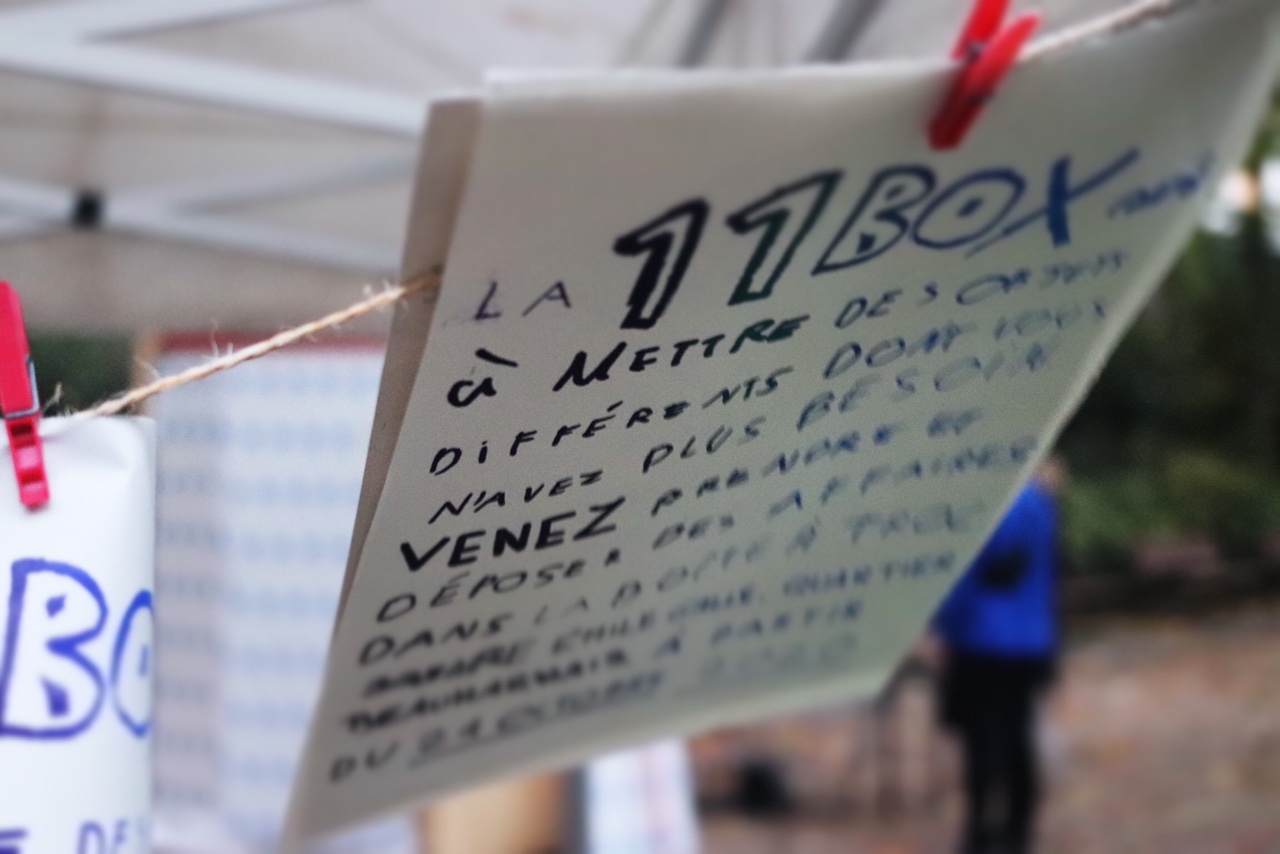 LA 11BOX
à METTRE DES OBJETS
DIFFÉRENTS DONT VOUS
N'AVEZ PLUS BESOIN
VENEZ PRENDRE ET
DÉPOSER DES AFFAIRES
DANS LA BOITE À TROC
SQUARE ÉMILE GALLE, QUARTIER
BEAUHARNAIS À PARTIR
DU 24 OCTOBRE 2020
BO
DE